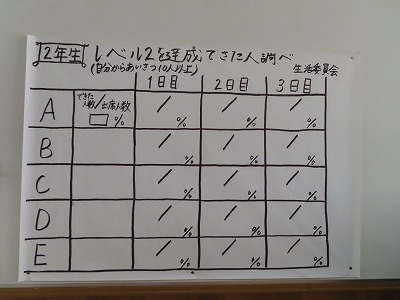 2年生 レベル2を達成できた人調べ
(自分からあいさつ10人以上)
生活委員会
1日目 2日目 3日目
A できた人数/出席人数 % / % / % / %
B / % / % / %
C / % / % / %
D / % / % / %
E / % / % / %